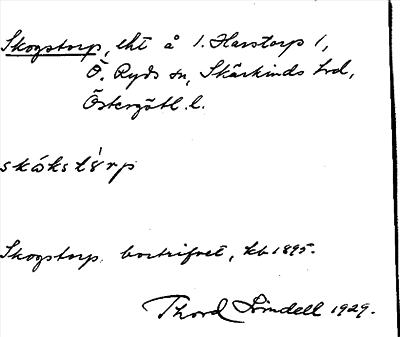 Skogstorp, lht å 1. Harstorp 1,
Ö. Ryds sn, Skärkinds hd,
Östergötl. l.
skɷkstɵ̀rp
Skogstorp. bortrifvet, kb 1895.
Thord Lindell 1929.